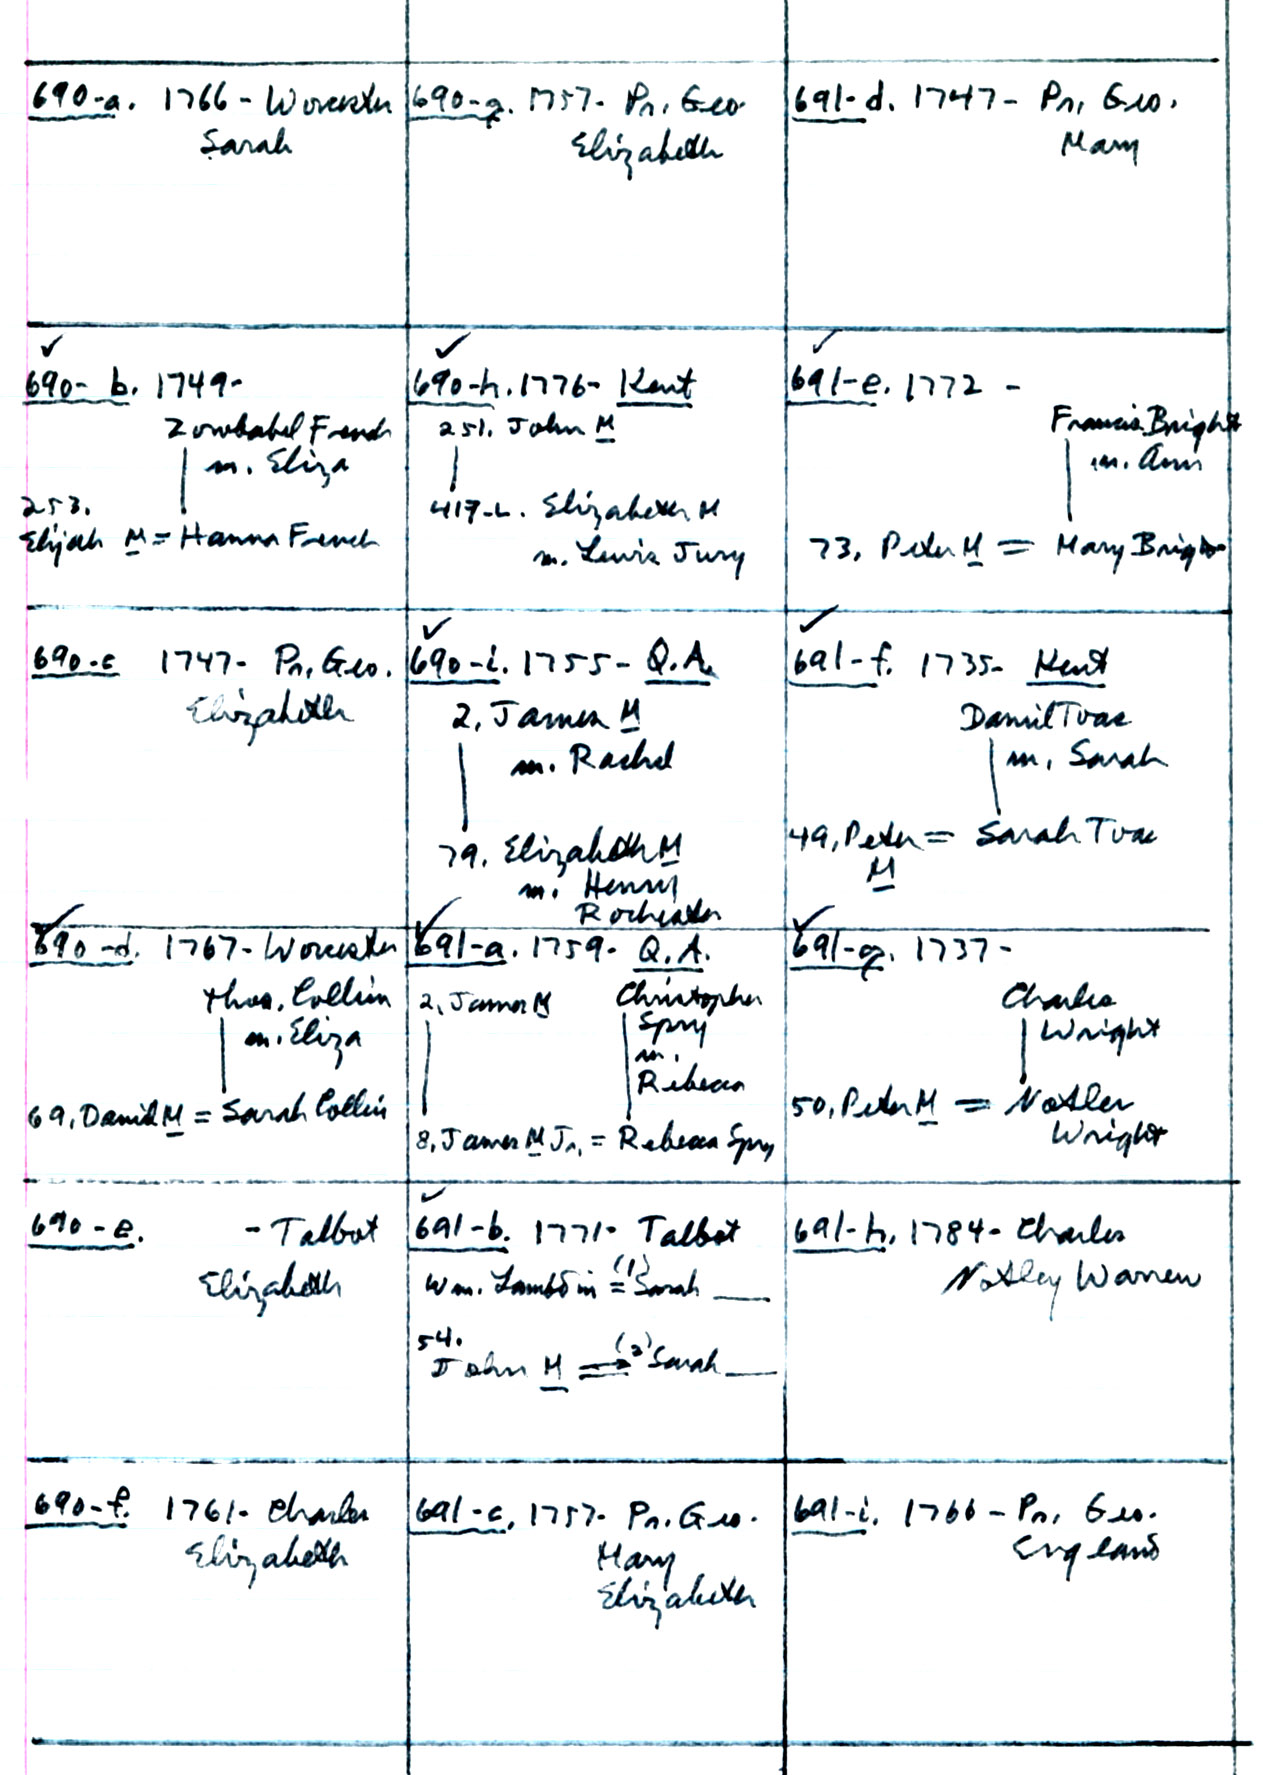 690-a. 1766- Worcester
Sarah
690-g. 1757- Pr. Geo.
Elizabeth
691-d. 1747- Pr. Geo.
Mary
✓
690-b. 1749-
Zorobabel French
m. Eliza
253.
Elijah M = Hanna French
✓
690-h. 1776- Kent
251. John M
417-L. Elizabeth M
m. Lewis Jury
✓
691-e. 1772 -
Francis Bright
m. Ann
73. Peter M = Mary Bright
690-c 1747- Pr. Geo.
Elizabeth
✓
690-i. 1755- Q.A.
2. James M
m. Rachel
79. Elizabeth M
m. Henry
Rochester
✓
691-f. 1735- Kent
Daniel Toas
m. Sarah
49. Peter = Sarah Toas
M
✓
690-d. 1767- Worcester
Thos. Collin
m. Eliza
69. David M = Sarah Collin
✓
691-a. 1759- Q.A.
2. James M Christopher
Spry
m.
Rebecca
8. James M Jr. = Rebecca Spry
✓
691-g. 1737-
Charles
Wright
50. Peter M = Notler
Wright
690-e. - Talbot
Elizabeth
✓
691-b. 1771- Talbot
(1)
Wm. Lambdin = Sarah ___
54. (2)
John M = Sarah ___
691-h. 1784- Charles
Notley Warren
690-f. 1761- Charles
Elizabeth
691-c. 1757- Pr. Geo.
Mary
Elizabeth
691-i. 1766- Pr. Geo.
England